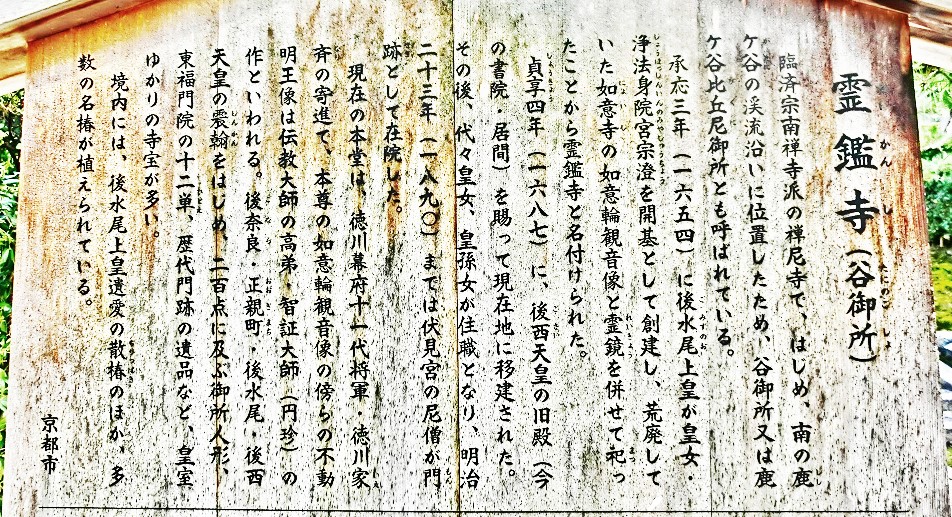 霊鑑寺（谷御所）
臨済宗南禅寺派の禅尼寺で、はじめ、南の鹿
ケ谷の渓流沿いに位置したため、谷御所又は鹿
ケ谷比丘尼御所とも呼ばれている。
承応三年（一六五四）に後水尾上皇が皇女・
浄法身院宮宗澄を開基として創建し、荒廃して
いた如意寺の如意輪観音像と霊鏡を併せて祀っ
たことから霊鑑寺と名付けられた。
貞享四年（一六八七）に、後西天皇の旧殿（今
の書院・居間）を賜って現在地に移建された。
その後、代々皇女、皇孫女が住職となり、明治
二十三年（一八九〇）までは伏見宮の尼僧が門
跡として在院した。
現在の本堂は、徳川幕府十一代将軍・徳川家
斉の寄進で、本尊の如意輪観音像の傍らの不動
明王像は伝教大師の高弟・智証大師（円珍）の
作といわれる。後奈良・正親町・後水尾・後西
天皇の宸翰をはじめ、二百点に及ぶ御所人形、
東福門院の十二単、歴代門跡の遺品など、皇室
ゆかりの寺宝が多い。
境内には、後水尾上皇遺愛の散椿のほか、多
数の名椿が植えられている。
京都市